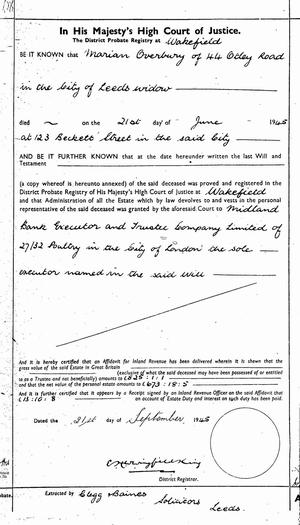 In His Majesty's High Court of Justice.
The District Probate Registry at Wakefield
BE IT KNOWN that Marian Overbury of 44 Otley Road
in the City of Leeds widow
died on the 21st day of June 1945
at 123 Becketts Street in the said City
AND BE IT FURTHER KNOWN that at the date hereunder written the last Will and
Testament
(a copy whereof is hereunto annexed) of the said deceased was proved and registered in the
District Probate Registry of His Majesty's High Court of Justice at Wakefield
and that Administration of all the Estate which by law devolves to and vests in the personal
representative of the said deceased was granted by the aforesaid Court to Midland
Bank Executor and Trustee Company Limited of
27/32 Poultry in the City of London the sole
executor named in the said will
And it is hereby certified that an Affidavit for Inland Revenue has been delivered wherein it is shewn that the
gross value of the said Estate in Great Britain
(exclusive of what the said deceased may have been possessed of or entitled
to as a Trustee and not beneficially) amounts to £825 : 1 : 1
and that the net value of the personal estate amounts to £673 : 18 : 5
And it is further certified that it appears by a Receipt signed by an Inland Revenue Officer on the said Affidavit that
£13 : 10 : 8 on account of Estate Duty and interest on such duty has been paid.
Dated the 21st day of September 1945
District Registrar.
Extracted by Clegg Baines Solicitors Leeds.